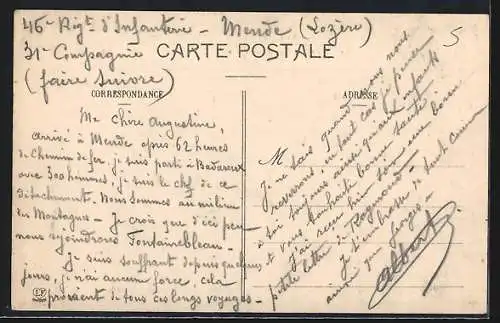 46e Rigt d'Infanterie - Mende (Lozère)
31e Compagnie
CARTE POSTALE
(faire suivre)
CORRESPONDANCE
ADRESSE
Ma Chère Augustine,
Arrivé à Mende après 62 heures
de Chemin de fer, je suis parti à Bédarieux
avec 300 hommes, je suis le chef de ce
détachement. Nous sommes au milieu
des Montagnes - Je crois que d'ici peu
nous rejoindrons Fontainebleau.
Je suis souffrant depuis quelques
jours, je n'ai aucune force, cela
provient de tous ces longs voyages -
M
Je ne sais quand nous nous
reverrons, en tout cas je pense
à toi toujours ainsi qu'aux enfants
et vous souhaite bonne santé
j'ai reçu hier soir une bonne
petite lettre de Raymond -
Je t'embrasse de tout cœur
ainsi que Georges -
Albert
5